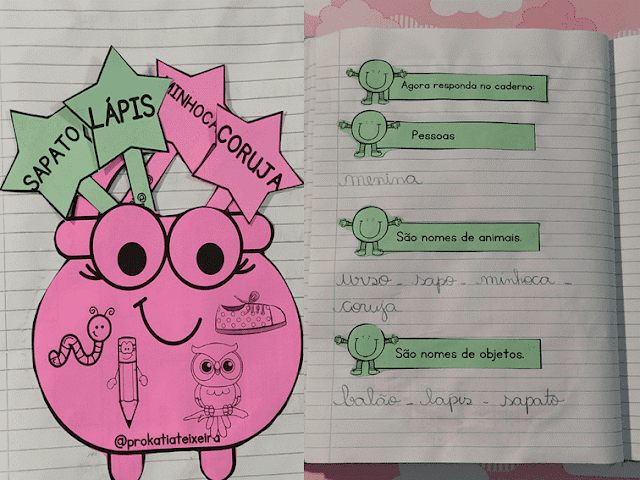 SAPATO
LÁPIS
MINHOCA
CORUJA
@prokatiateixeira
Agora responda no caderno:
Pessoas
menina
São nomes de animais.
urso - sapo - minhoca -
coruja
São nomes de objetos.
balão - lapis - sapato